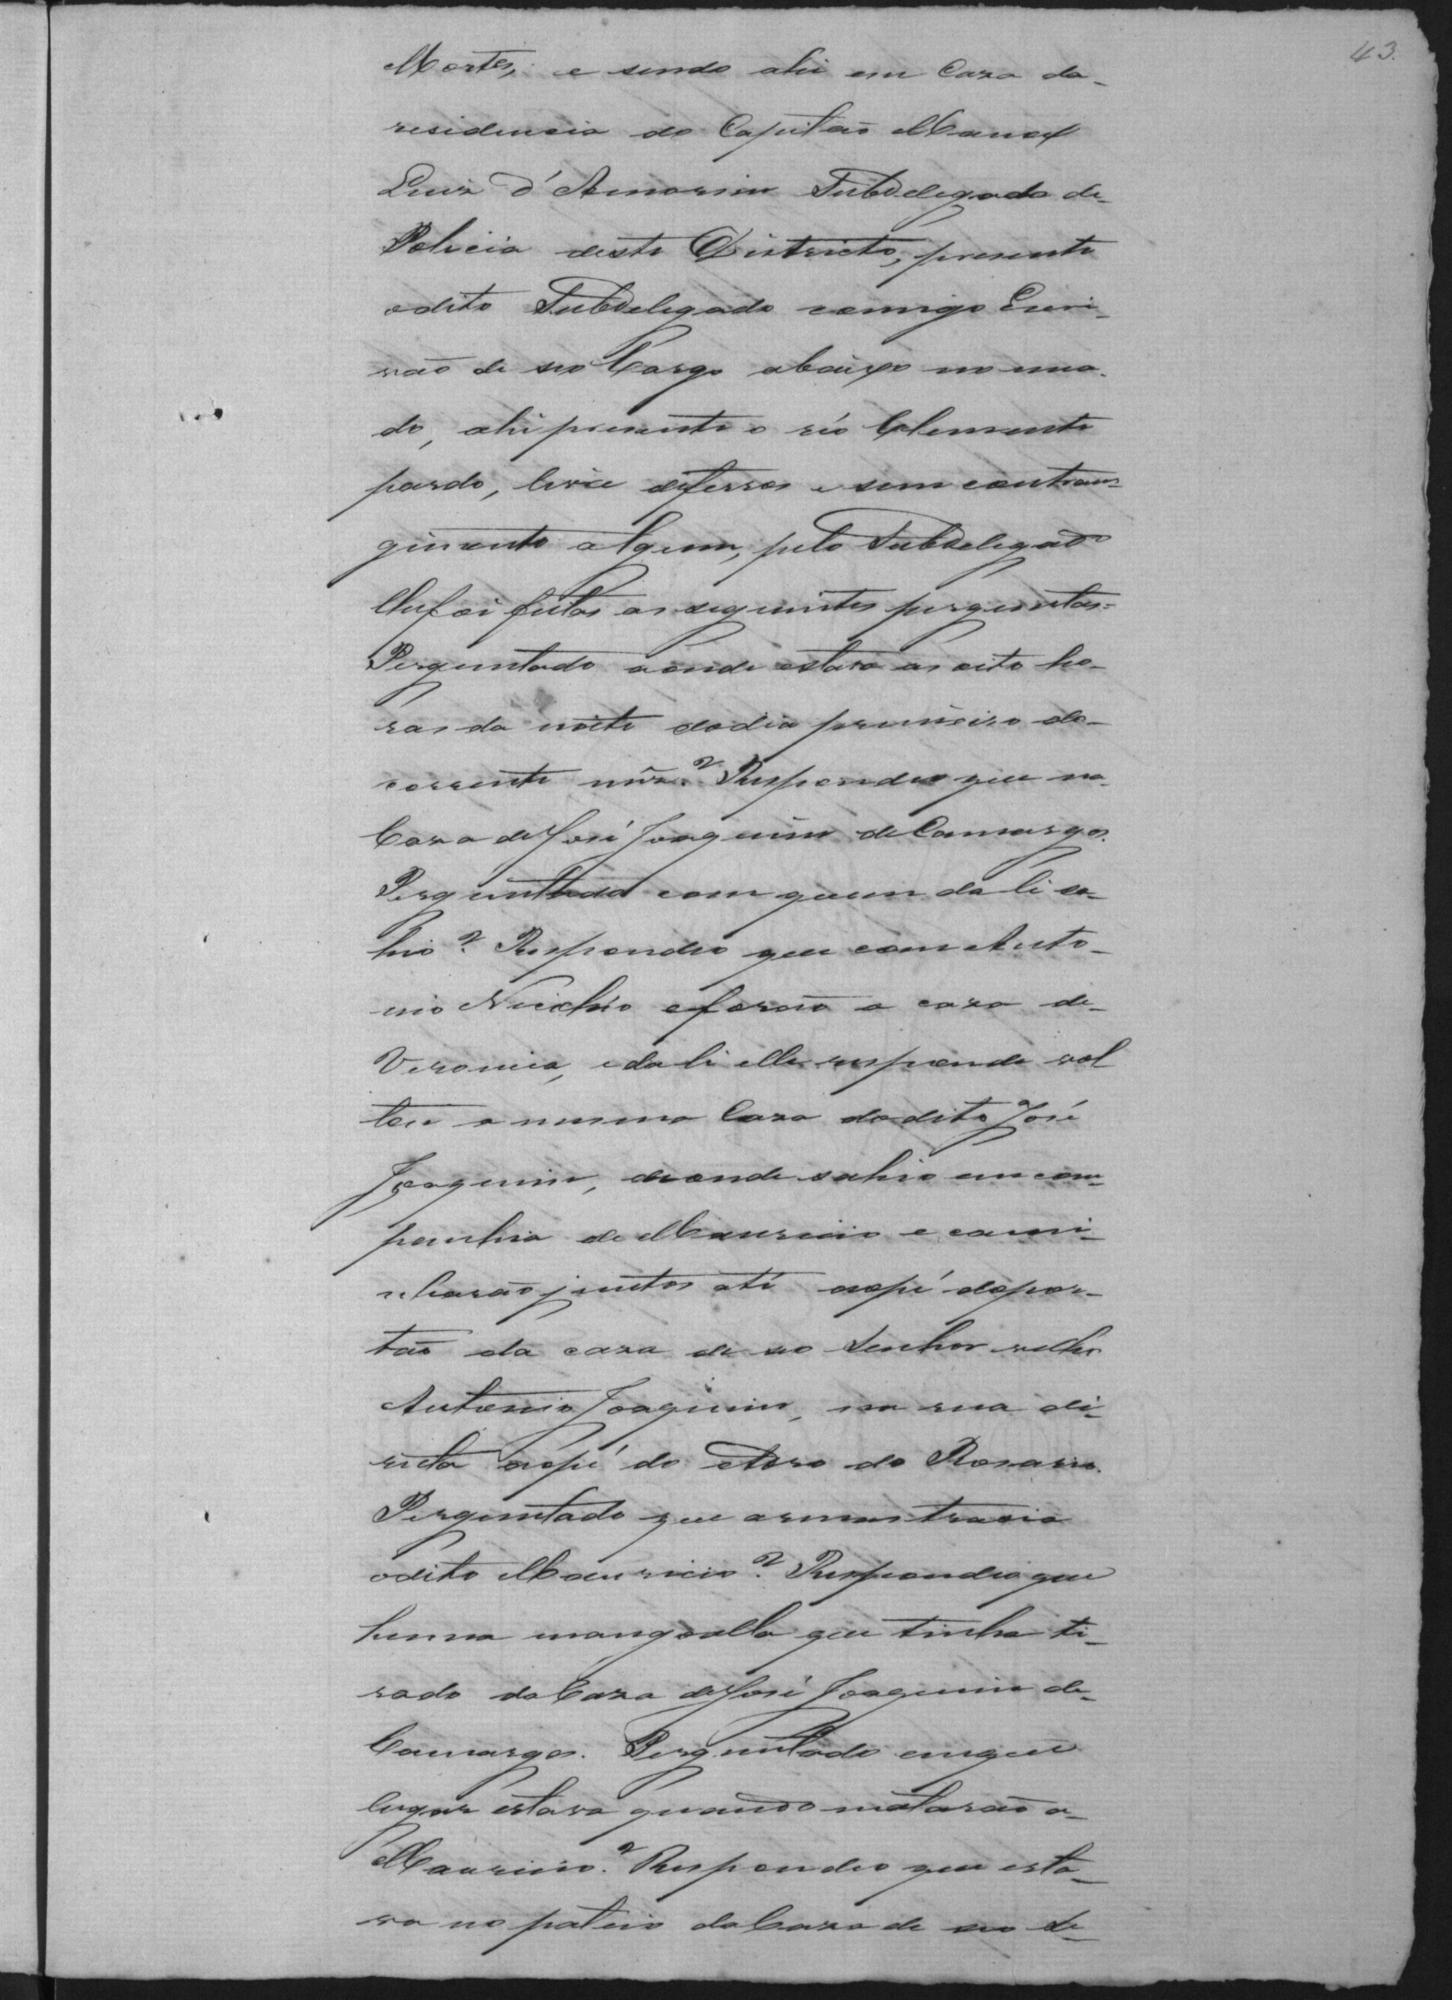 43.
Mortes, e sendo ahi em Caza da
residencia do Capitão Manoel
Luiz d'Amorim Subdelegado de
Policia deste Districto, presente
odito Subdelegado comigo Escri-
vão de seo Cargo abaixo nomea-
do, ahi presente o réo Clemente
pardo, livre deferros e sem constran-
gimento algum, pelo Subdelegado
lhefoi feitas as seguintes perguntas=
Perguntado aonde estava as oito ho-
ras da noite dodia primeiro do-
corrente mêz? Respondeo que na
Caza deJosé Joaquim deCamargos.
Perguntado com quem dali sa-
hio? Respondeo que com Anto-
nio efarão a caza de
Veronica, edali elle respondente vol
tou a mesma Caza dodito José
Joaquim, deonde sahio em com-
panhia de Mauricio e cami-
nharão juntos até aopé dopor-
tão da caza de seo Senhor velho
Antonio Joaquim, na rua di-
reita aopé do Adro do Rosario.
Perguntado que armas trazia
odito Mauricio? Respondeo que
huma mangoalla que tinha ti-
rado daCaza deJosé Joaquim de-
Camargos. Perguntado emque
lugar estava quando matarão a-
Mauricio? Respondeo que esta-
va no pateio daCaza de seo Se-